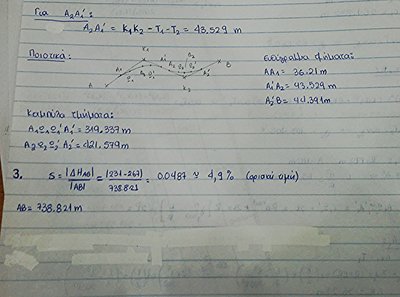 Για A₂A₁':
A₂A₁' = K₁K₂ - T₁ - T₂ = 43.529 m
Ποιοτικά:
K₁
A A₁ A₁' A₂ A₂' B
K₂
ευθύγραμμα τμήματα:
AA₁ = 36.21 m
A₁'A₂ = 43.529 m
A₂'B = 44.391 m
Καμπύλα τμήματα:
A₁Ω₁Ω₁'A₁' = 319.337 m
A₂Ω₂Ω₂'A₂' = 421.579 m
3. S = |ΔH_AB| / |AB| = |231-267| / 738.821 = 0.0487 ≈ 4,9% (οριακή τιμή)
AB = 738.821 m